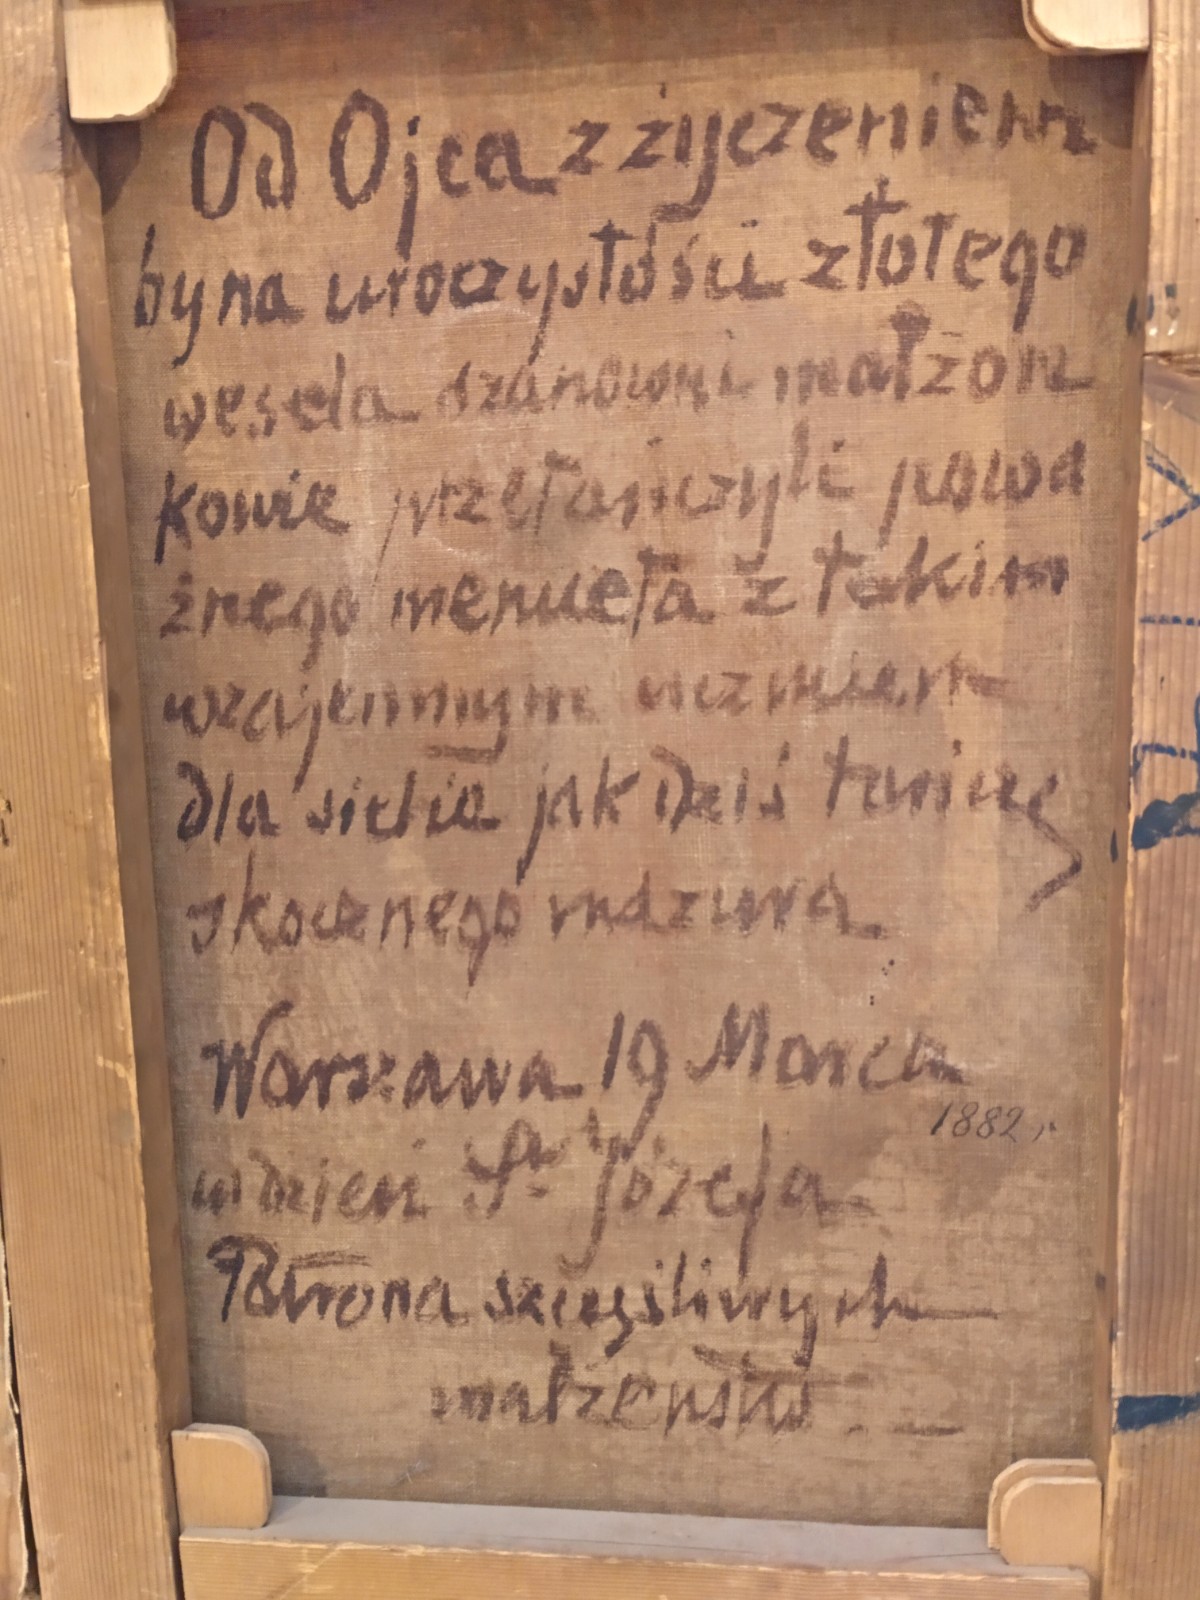 Od Ojca z życzeniem
by na uroczystości złotego
wesela szanowni małżon
kowie przetańczyli powa
żnego menueta z takim
wzajemnym
dla siebie jak dziś tańczą
skocznego mazura
Warszawa 19 Marca
1882 r.
w dzień Sgo Józefa
Patrona szczęśliwych
małżeństw. —